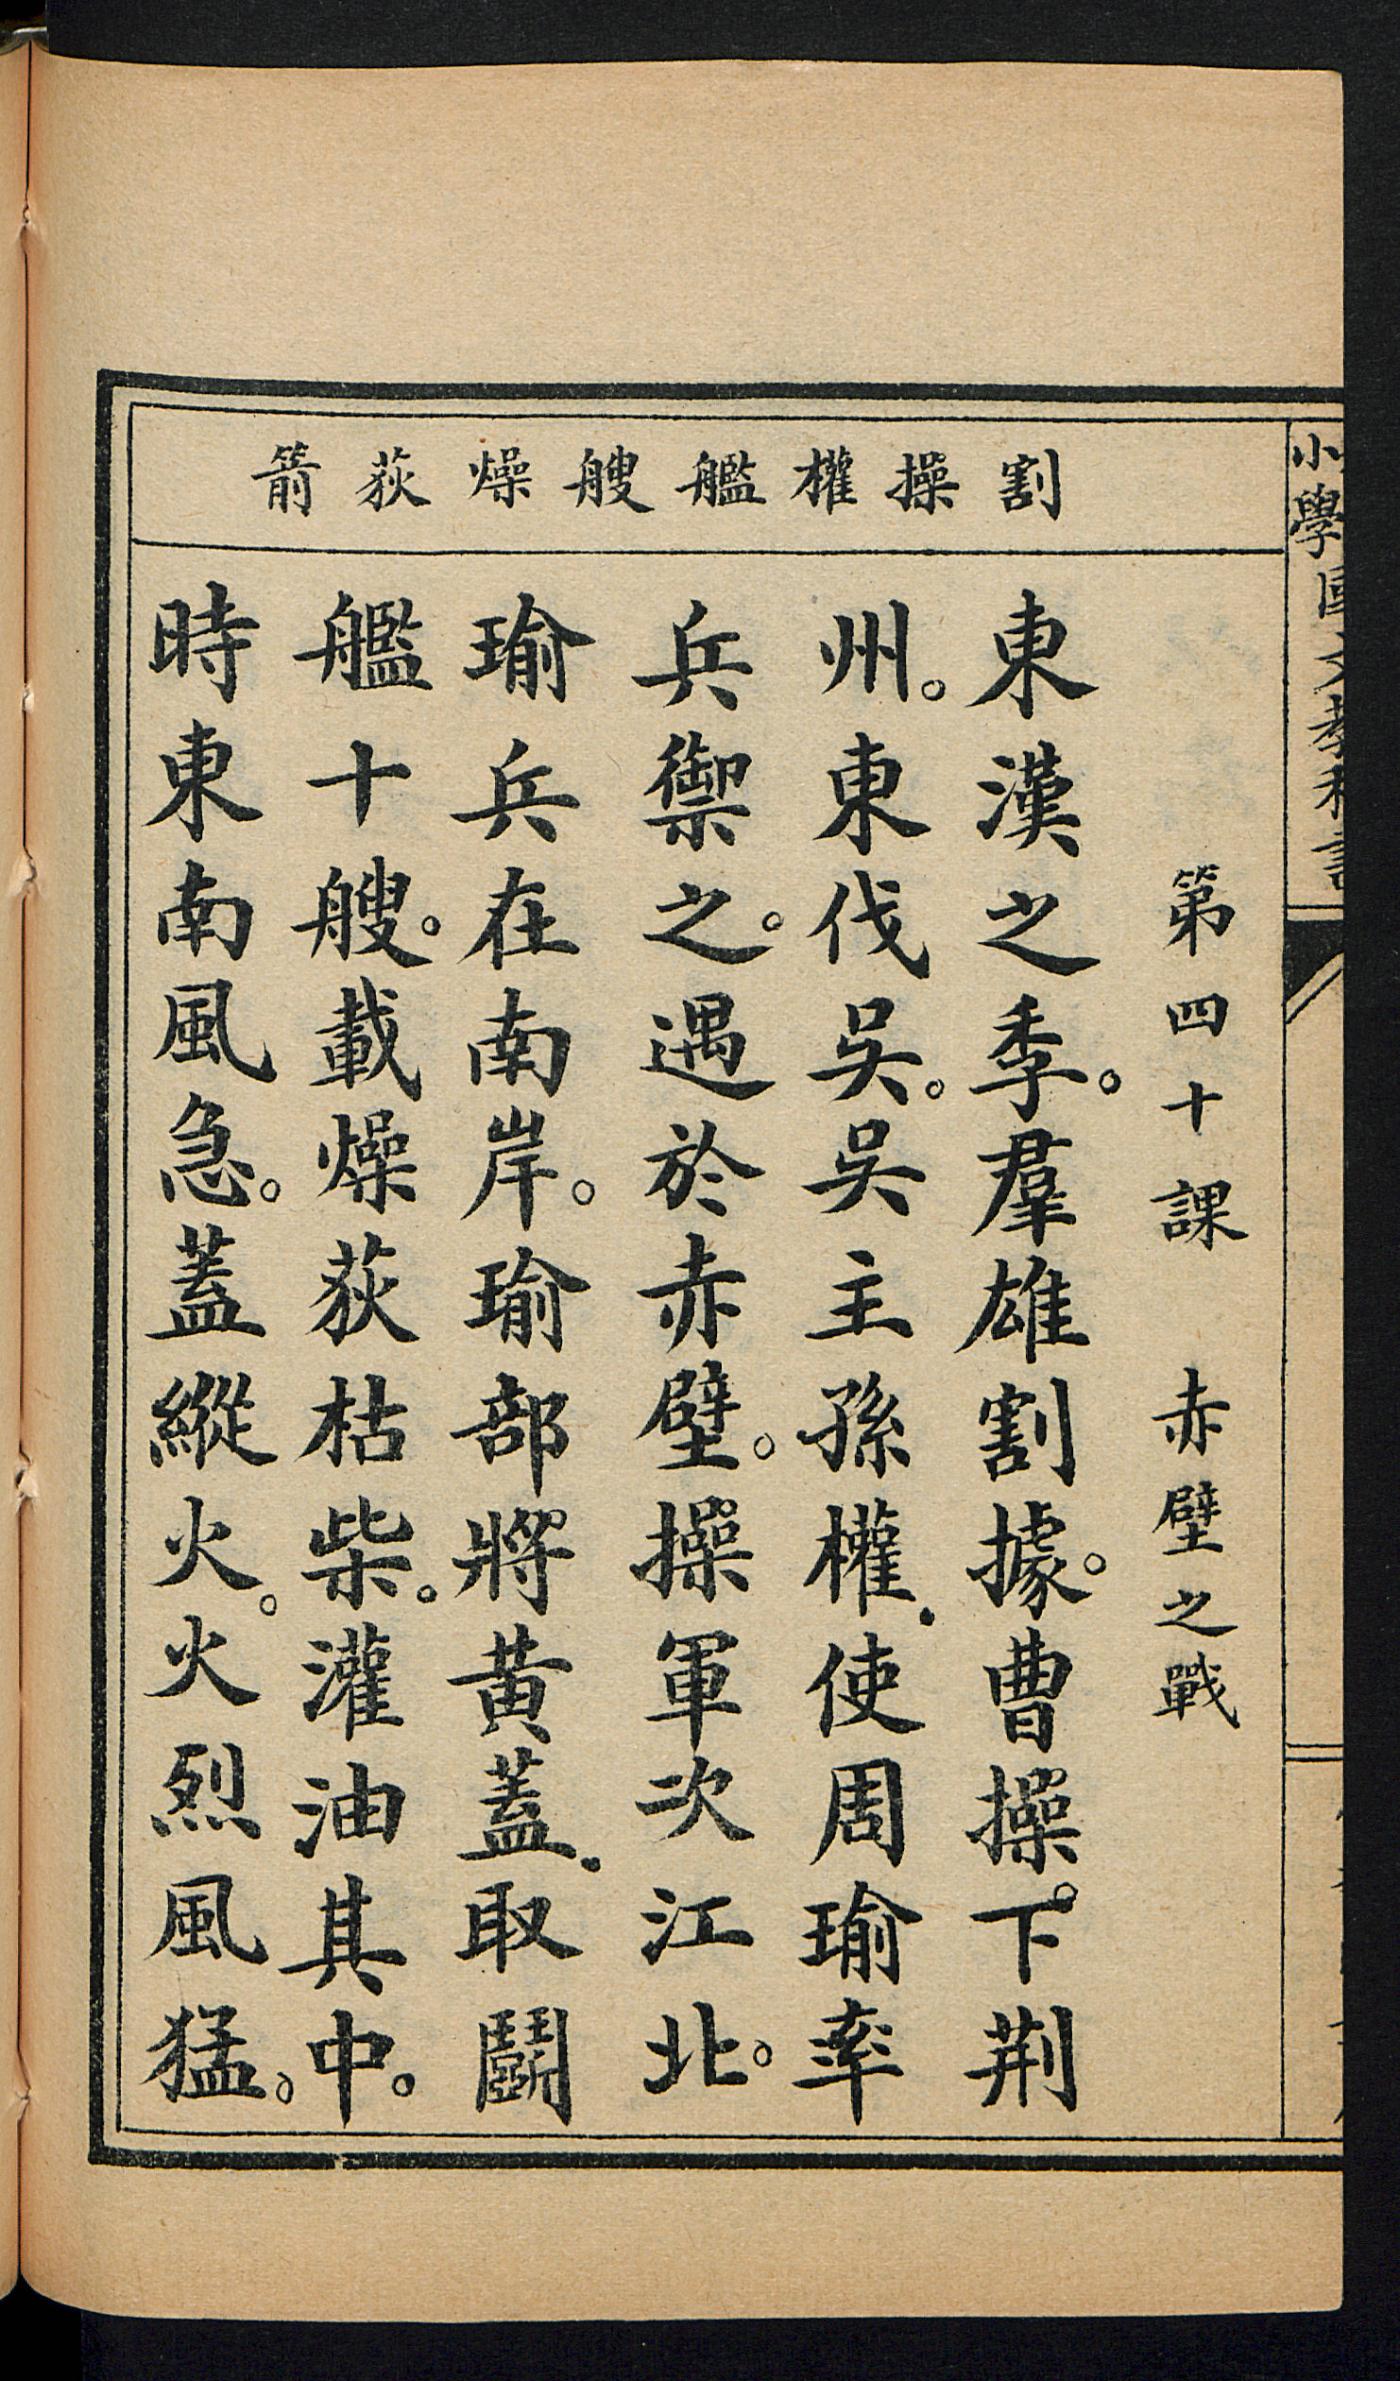 小學國文教科書
割操權艦艘燥荻箭
第四十課　赤壁之戰
東漢之季。羣雄割據。曹操。下荆
州。東伐吳。吳主孫權．使周瑜率
兵禦之。遇於赤壁。操軍次江北。
瑜兵在南岸。瑜部將黃蓋．取鬭
艦十艘。載燥荻枯柴。灌油其中。
時東南風急。蓋縱火。火烈風猛。